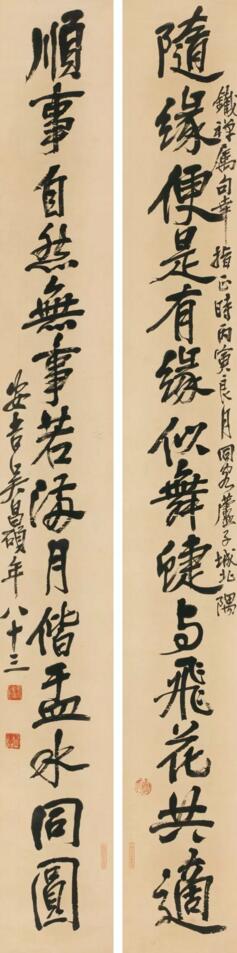 鐵禅屬句幸指正時丙寅良月回客蘆子城北隅
隨緣便是有緣似舞蜨与飛花共適
順事自然無事若滿月偕盂水同圓
安吉吳昌碩年八十三